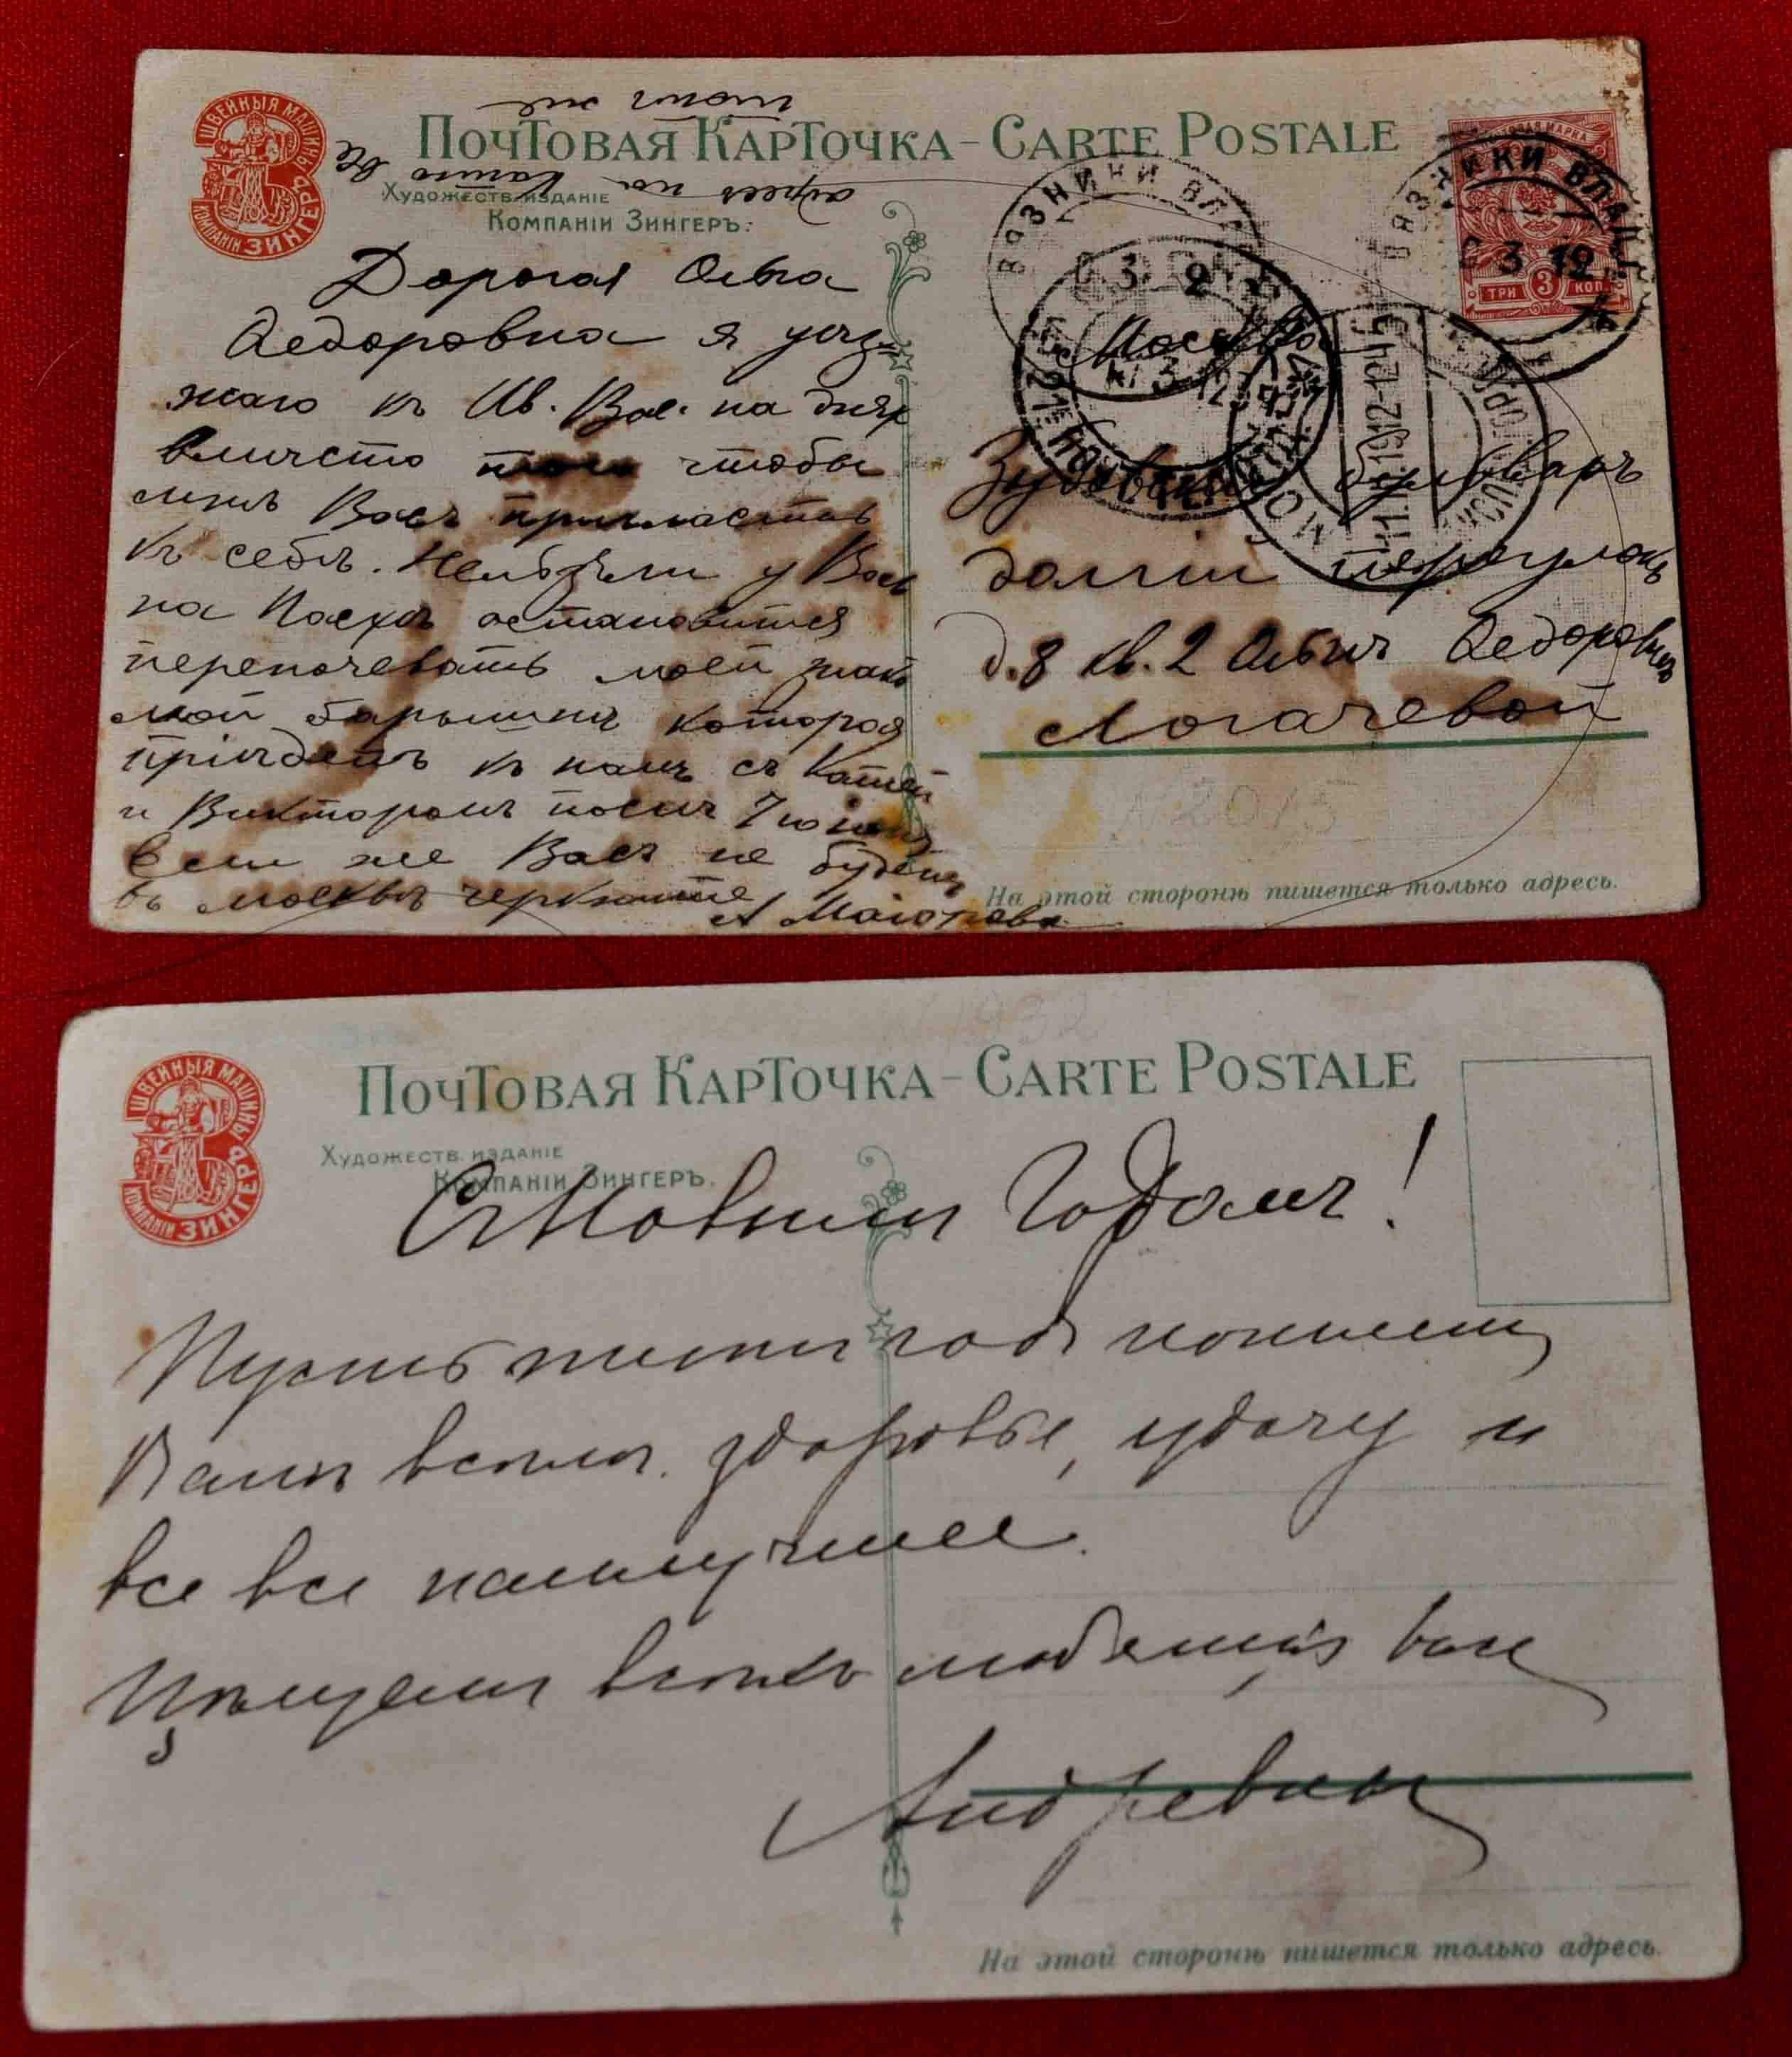 ШВЕЙНЫЯ МАШИНЫ
КОМПАНІИ ЗИНГЕРЪ
ПОЧТОВАЯ КАРТОЧКА - CARTE POSTALE
ХУДОЖЕСТВ. ИЗДАНІЕ
КОМПАНІИ ЗИНГЕРЪ.
адресъ на Катю
тотъ же
Дорогая Ольга
Федоровна я уѣз
жаю къ Ив. Вас. на дняхъ
вмѣсто того чтобы
мнѣ Васъ пригласить
къ себѣ. Нельзя ли у Васъ
на Пасхѣ остановится
переночевать моей знако
мой барышнѣ которая
пріѣдетъ къ намъ съ Катей
и Викторомъ послѣ
Если же Васъ не будетъ
въ Москвѣ черкните
А Маіорова
ПОЧТОВАЯ МАРКА
ТРИ 3 КОП
ВЯЗНИКИ ВЛАД.
3 12
ВЯЗНИКИ ВЛАД.
3 12
МОСКВА
11.3.1912
Москва
Зубовскій бульваръ
долгій переулокъ
д. 8 кв. 2 Ольгѣ Федоровнѣ
Логачевой
На этой сторонѣ пишется только адресъ.
ШВЕЙНЫЯ МАШИНЫ
КОМПАНІИ ЗИНГЕРЪ
ПОЧТОВАЯ КАРТОЧКА - CARTE POSTALE
ХУДОЖЕСТВ. ИЗДАНІЕ
КОМПАНІИ ЗИНГЕРЪ.
Съ Новымъ Годомъ!
Пусть годъ
Вамъ всѣмъ здоровье, удачу и
все все наилучшее.
Цѣлуемъ всѣхъ любящія васъ
На этой сторонѣ пишется только адресъ.